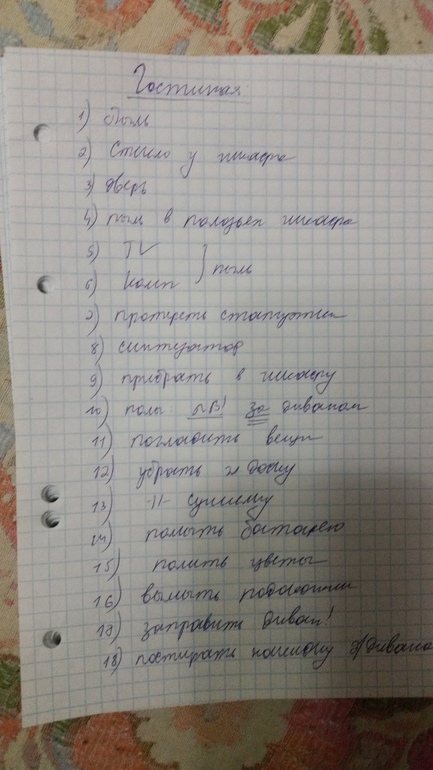 Гостиная
1) Пыль
2) Стекло у шкафа
3) дверь
4) пыль в полозьях шкафа
5) TV } пыль
6) Комп
7) протереть статуэтки
8) синтезатор
9) прибрать в шкафу
10) полы ‼В! за диваном
11) погладить вещи
12) убрать гл доску
13) -//- сушилку
14) помыть батарею
15) полить цветы
16) вымыть подоконник
17) заправить диван!
18) постирать накидку д/дивана